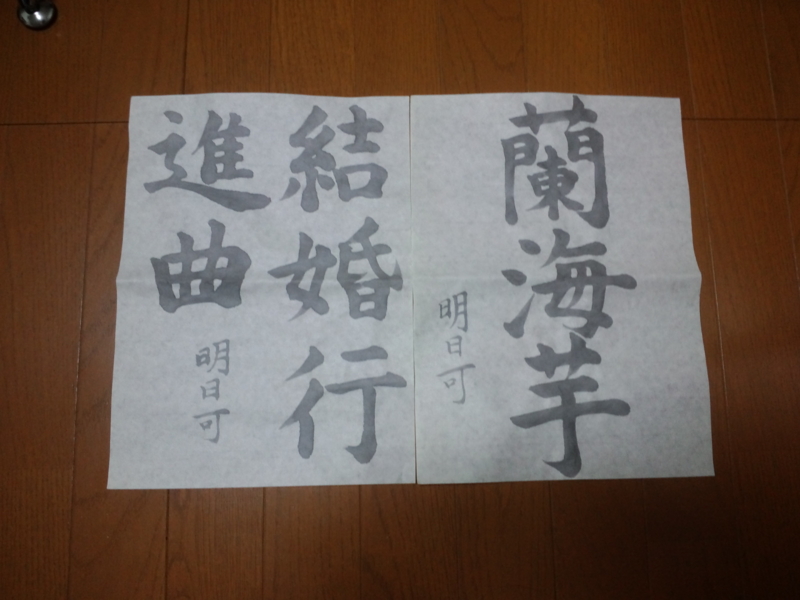 蘭海芋
明日可
結婚行
進曲
明日可